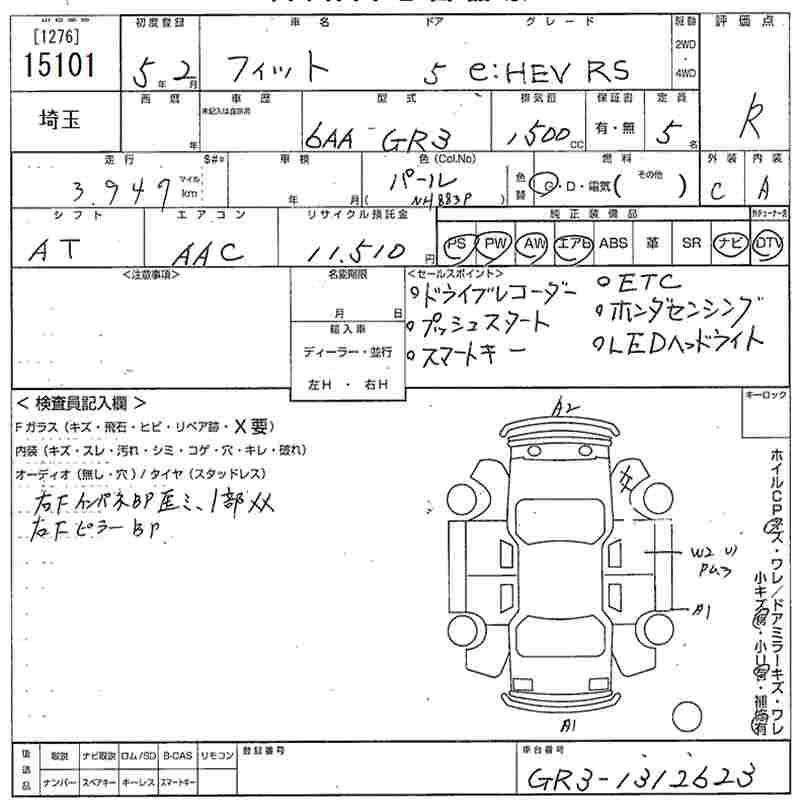 [1276]
15101
埼玉
初度登録
5年 2月
車名 ドア グレード
フィット 5 e:HEV RS
駆動
2WD
・
4WD
評価点
R
西暦
年
車歴
未記入は自家用
型式
6AA GR3
排気量
1500 CC
保証書
有・無
定員
5名
走行 S#※
3.949 マイル km
車検
年 月
色 (Col.No)
パール
( NH883P )
色替
燃料
G・D・電気( その他 )
外装
C
内装
A
シフト
AT
エアコン
AAC
リサイクル預託金
11.510 円
純正装備品
PS PW AW エアb ABS 革 SR ナビ DTV
<注意事項>
名変期限
月 日
輸入車
ディーラー・並行
左H ・ 右H
<セールスポイント>
ドライブレコーダー
プッシュスタート
スマートキー
ETC
ホンダセンシング
LEDヘッドライト
< 検査員記入欄 >
Fガラス (キズ・飛石・ヒビ・リペア跡・X要)
内装 (キズ・スレ・汚れ・シミ・コゲ・穴・キレ・破れ)
オーディオ (無し・穴) / タイヤ (スタッドレス)
右F インパネBP歪ミ、1部XX
右F ピラー BP
キーロック
A2
XX
W2
A1
A1
ホイルCPキズ・ワレ/ドアミラーキズ・ワレ
後送品
取説 ナビ取説 ロム/SD B-CAS リモコン
ナンバー スペアキー キーレス スマートキー
登録番号
車台番号
GR3-1312623